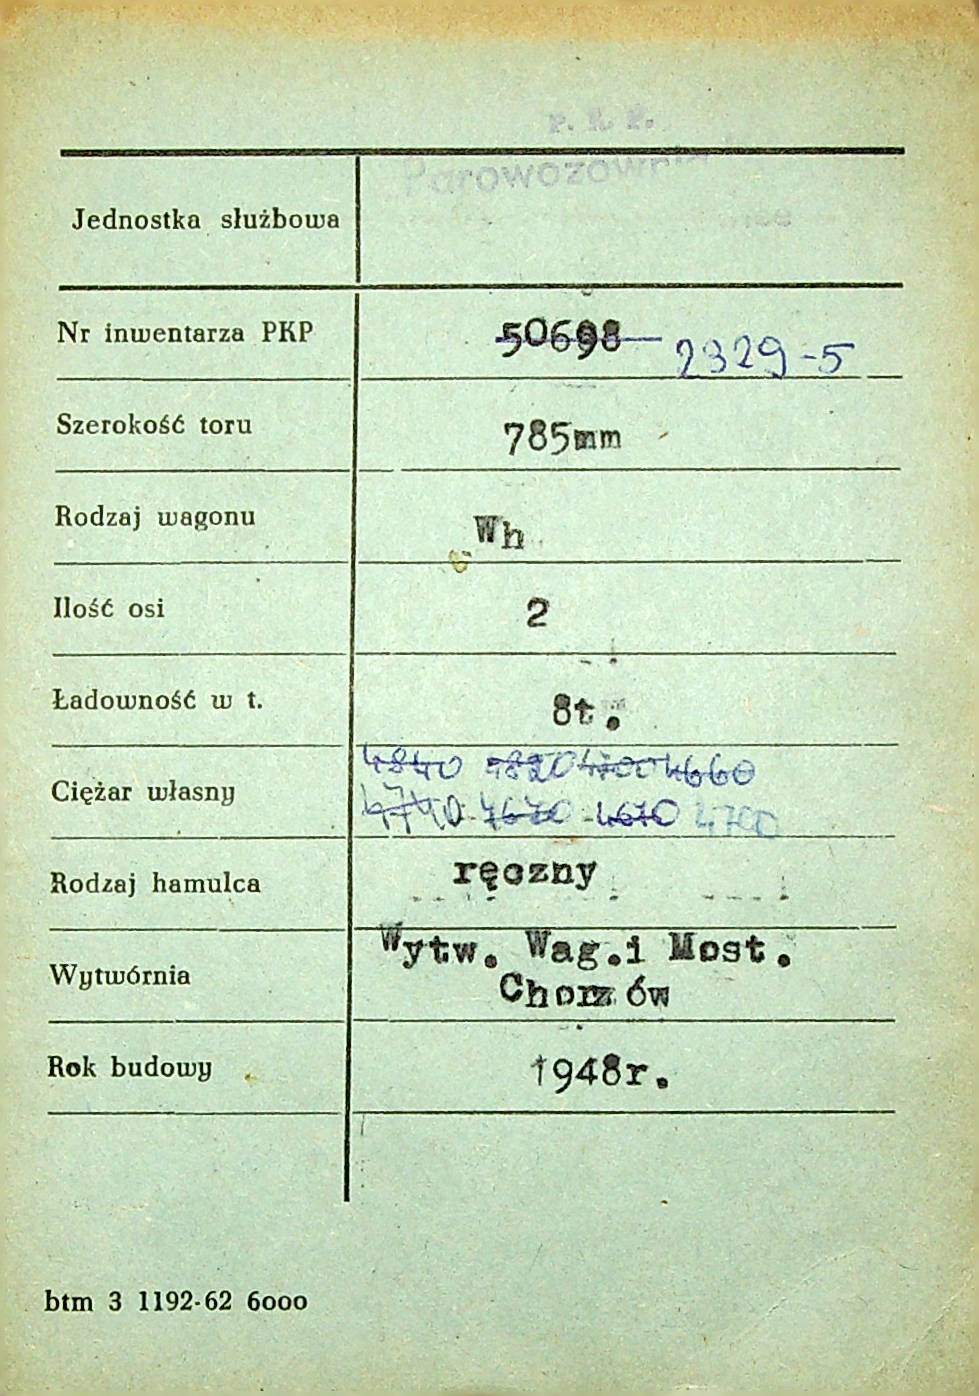 P. K. P.
Parowozownia
Jednostka służbowa
Nr inwentarza PKP 50698 2329-5
Szerokość toru 785mm
Rodzaj wagonu Wh
Ilość osi 2
Ładowność w t. 8t.
4840 4820 4700 4660
Ciężar własny
4740 4670 4670 4700
Rodzaj hamulca ręczny
Wytw. Wag.i Most.
Wytwórnia
Chorzów
Rok budowy 1948r.
btm 3 1192-62 6000